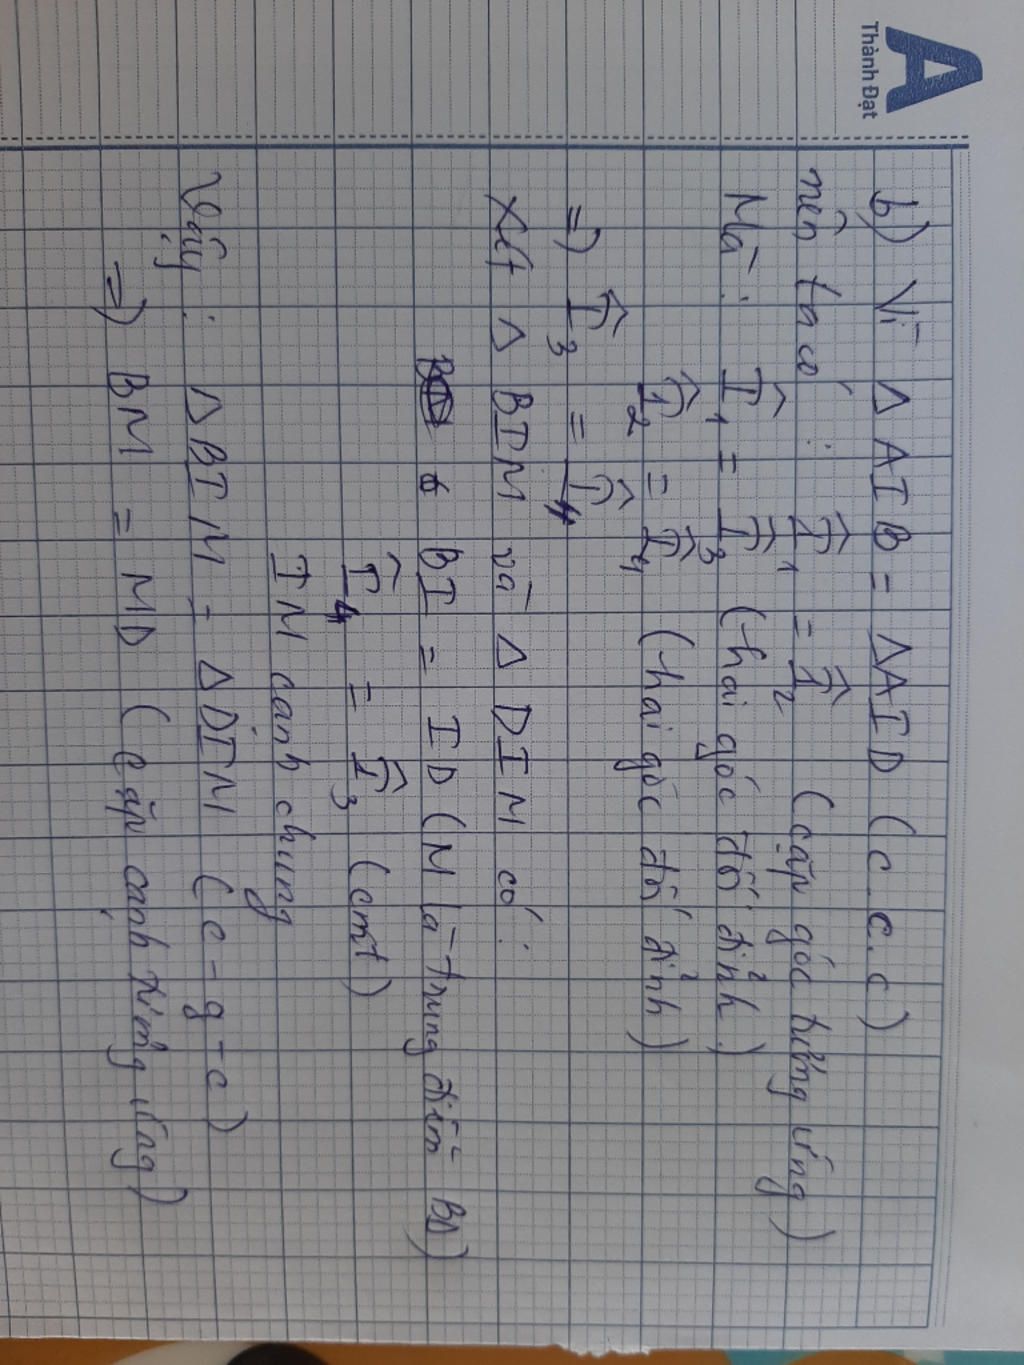 A
Thành Đạt
b) Vì Δ AIB = ΔAID (c.c.c)
nên ta có : Î1 = Î2 (cặp góc tướng ứng)
Mà : Î1 = Î3 (hai góc đối đỉnh)
Î2 = Î4 (hai góc đối đỉnh)
=) Î3 = Î4
Xét Δ BIM và Δ DIM có :
BI = ID (M là trung điểm BD)
Î4 = Î3 (cmt)
IM cạnh chung
Vậy : Δ BIM = Δ DIM (c-g-c)
=) BM = MD (cặp cạnh tướng ứng)